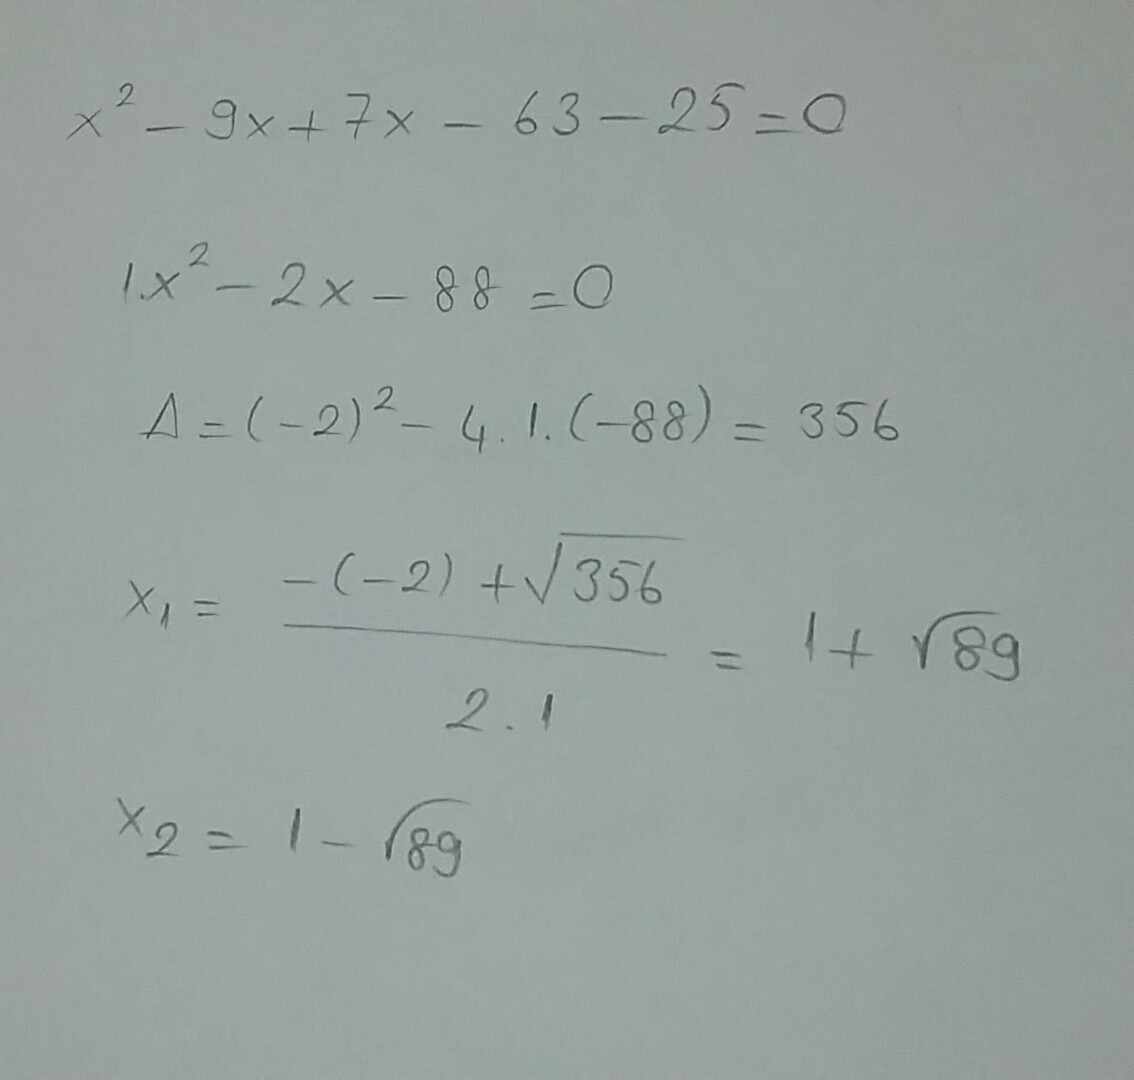 x² - 9x + 7x - 63 - 25 = 0
1.x² - 2x - 88 = 0
Δ = (-2)² - 4.1.(-88) = 356
x₁ = (-(-2) + √356) / (2.1) = 1 + √89
x₂ = 1 - √89